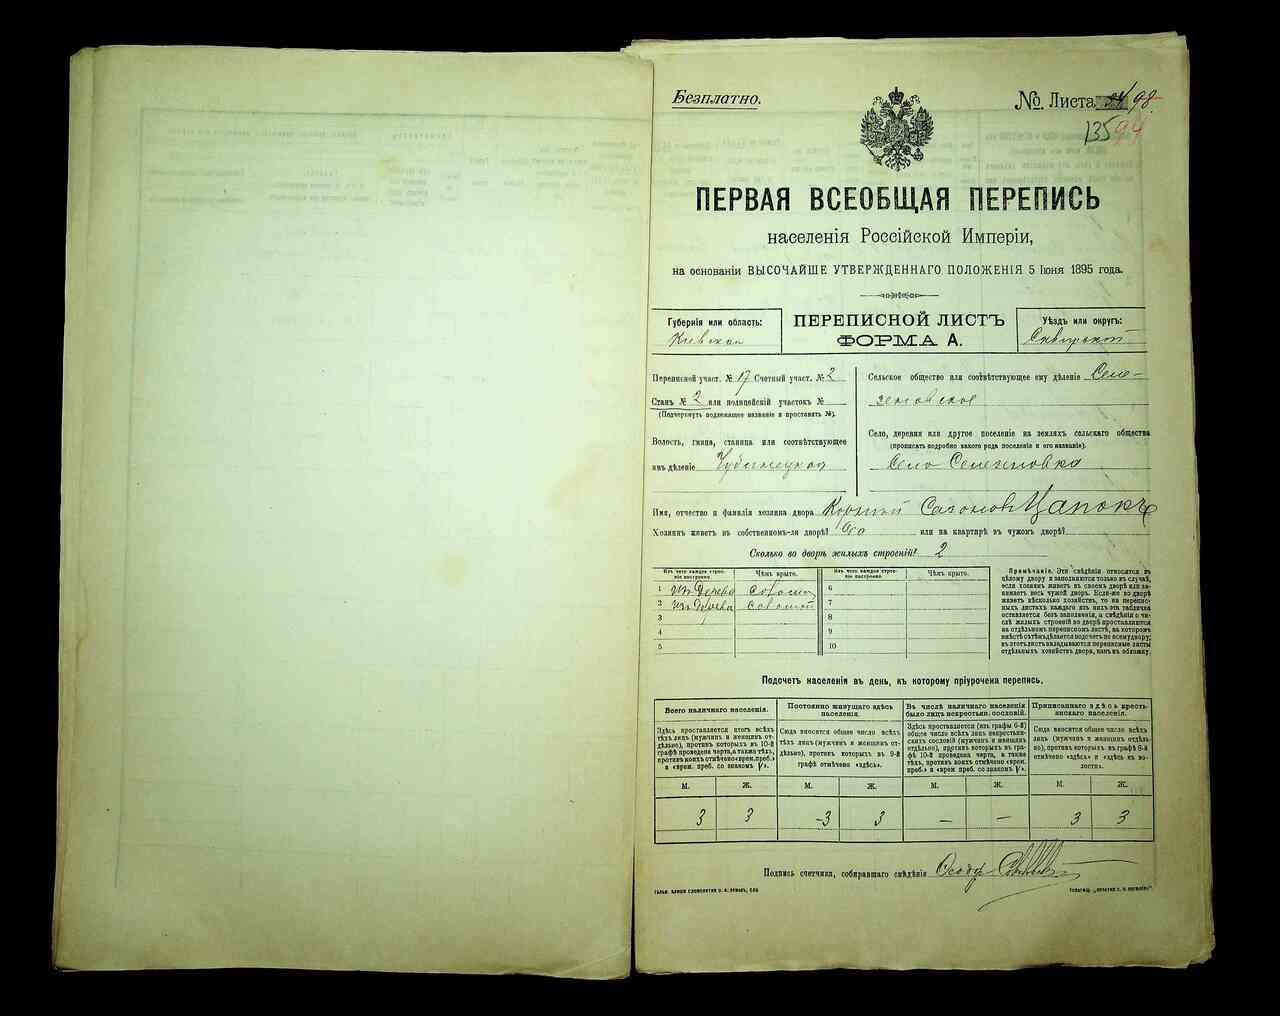 Безплатно.
№ Листа 98.
135 94
ПЕРВАЯ ВСЕОБЩАЯ ПЕРЕПИСЬ
населенія Россійской Имперіи,
на основаніи ВЫСОЧАЙШЕ УТВЕРЖДЕННАГО ПОЛОЖЕНІЯ 5 Іюня 1895 года.
Губернія или область:
Кіевская
ПЕРЕПИСНОЙ ЛИСТЪ
ФОРМА А.
Уѣздъ или округъ:
Сквирскій
Переписной участ. № 17 Счетный участ. № 2
Станъ № 2 или полицейскій участокъ №
(Подчеркнуть подлежащее названіе и проставить №).
Волость, гмина, станица или соотвѣтствующее
имъ дѣленіе Чубинецкая
Сельское общество или соотвѣтствующее ему дѣленіе Селе-
зеновское
Село, деревня или другое поселеніе на земляхъ сельскаго общества
(прописать подробно какого рода поселеніе и его названіе).
Село Селезеновка
Имя, отчество и фамилія хозяина двора Корній Сазоновъ Цапокъ
Хозяинъ живетъ въ собственномъ-ли дворѣ? или на квартирѣ въ чужомъ дворѣ?
Сколько во дворѣ жилыхъ строеній? 2
Изъ чего каждое строе-
ніе построено.
Чѣмъ крыто.
1 Изъ дерева соломой
2 Изъ дерева соломой
3
4
5
Изъ чего каждое строе-
ніе построено.
Чѣмъ крыто.
6
7
8
9
10
Примѣчаніе. Эти свѣдѣнія относятся къ
цѣлому двору и заполняются только въ случаѣ,
если хозяинъ живетъ въ своемъ дворѣ или за-
нимаетъ весь чужой дворъ. Если-же во дворѣ
живетъ нѣсколько хозяйствъ, то на перепис-
ныхъ листахъ каждаго изъ нихъ эта табличка
оставляется безъ заполненія, а свѣдѣнія о чи-
слѣ жилыхъ строеній во дворѣ проставляются
на отдѣльномъ переписномъ листѣ, на которомъ
вмѣстѣ съ тѣмъ дѣлается подсчетъ по всему двору;
въ этотъ листъ вкладываются переписные листы
отдѣльныхъ хозяйствъ двора, какъ въ обложку.
Подсчетъ населенія въ день, къ которому пріурочена перепись.
Всего наличнаго населенія.
Здѣсь проставляется итогъ всѣхъ
тѣхъ лицъ (мужчинъ и женщинъ от-
дѣльно), противъ которыхъ въ 10-й
графѣ проведена черта, а также тѣхъ,
противъ коихъ отмѣчено «врем. преб.»
и «врем. преб. со знакомъ V».
Постоянно живущаго здѣсь
населенія.
Сюда вносится общее число всѣхъ
тѣхъ лицъ (мужчинъ и женщинъ от-
дѣльно), противъ которыхъ въ 9-й
графѣ отмѣчено «здѣсь».
Въ числѣ наличнаго населенія
было лицъ некрестьян. сословій.
Здѣсь проставляется (изъ графы 6-й)
общее число всѣхъ некрестьян-
скихъ сословій (мужчинъ и женщинъ
отдѣльно), противъ которыхъ въ гра-
фѣ 10-й проведена черта, а также
тѣхъ, противъ коихъ отмѣчено «врем.
преб.» и «врем. преб. со знакомъ V».
Приписаннаго здѣсь кресть-
янскаго населенія.
Сюда вносится общее число всѣхъ
лицъ (мужчинъ и женщинъ отдѣль-
но), противъ которыхъ въ графѣ 8-й
отмѣчено «здѣсь» и «здѣсь въ во-
лости».
М. Ж. М. Ж. М. Ж. М. Ж.
3 3 3 3 — — 3 3
Подпись счетчика, собиравшаго свѣдѣнія